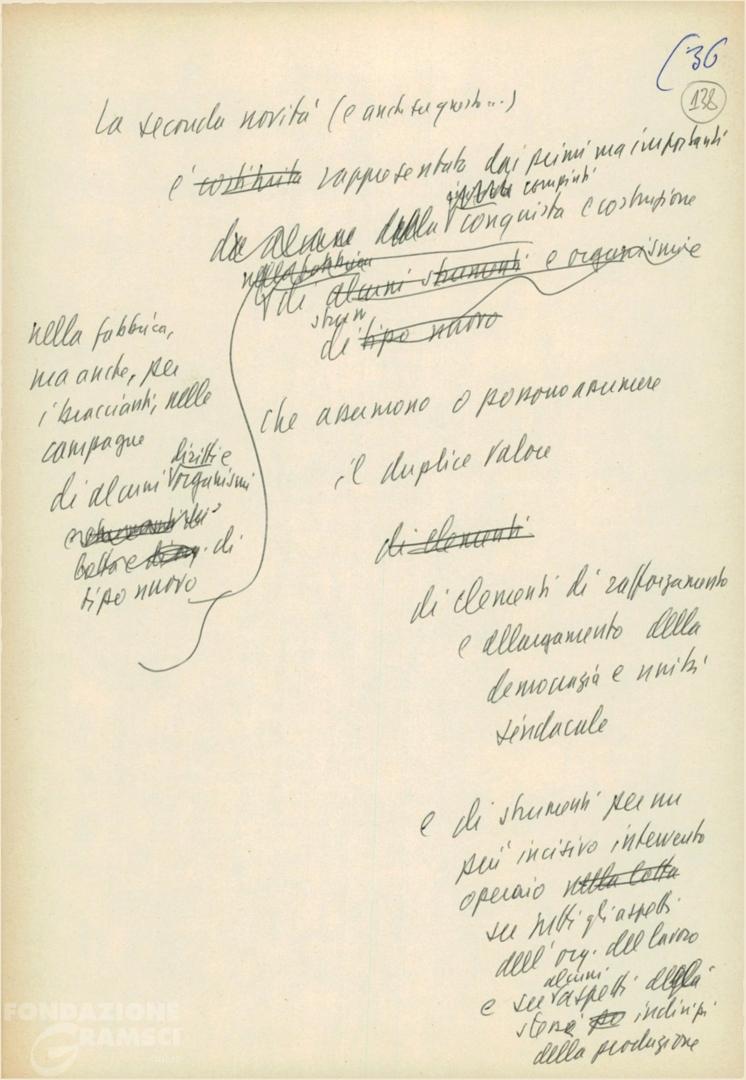 (36
138
La seconda novità (e anche su questo...)
è costituita rappresentata dai primi ma importanti
compiuti
da alcune della conquista e costruzione
nella fabbrica
di alcuni strumenti e organismi e
strum
di tipo nuovo
nella fabbrica,
ma anche, per
i braccianti, nelle
campagne
diritti e
di alcuni organismi
e strumenti di
lotta e di
tipo nuovo
che assumono o possono assumere
il duplice valore
di elementi
di elementi di rafforzamento
e allargamento della
democrazia e unità
sindacale
e di strumenti per un
più incisivo intervento
operaio nella lotta
su tutti gli aspetti
dell'org. del lavoro
alcuni
e su aspetti degli
stessi indirizzi
della produzione
FONDAZIONE
GRAMSCI